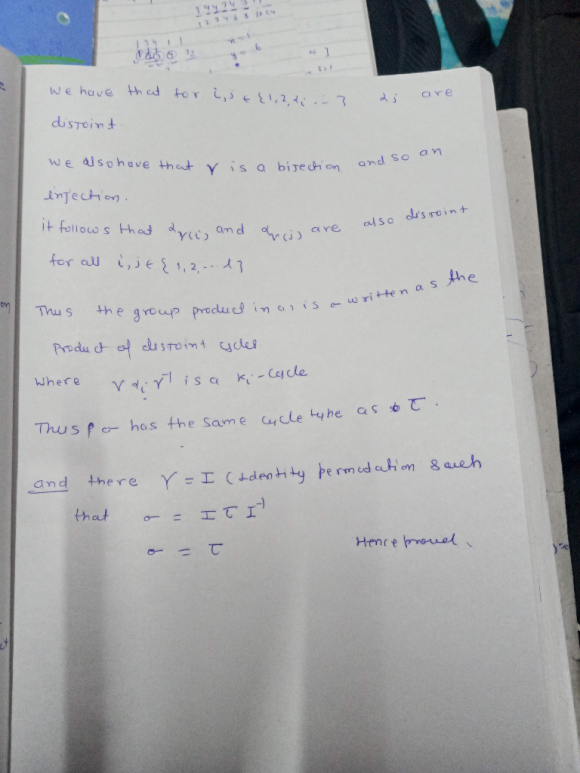 we have that for i,j ∈ {1,2,
αj are
disjoint.
we also have that γ is a bijection and so an
injection.
it follows that αγ(i) and αγ(j) are also disjoint
for all i,j ∈ {1,2,...
Thus the group product in is σ written as the
product of disjoint cycles
where γ αi γ⁻¹ is a Ki-cycle
Thus σ has the same cycle type as τ.
and there γ = I (Identity permutation such
that σ = I τ I⁻¹
σ = τ Hence proved.